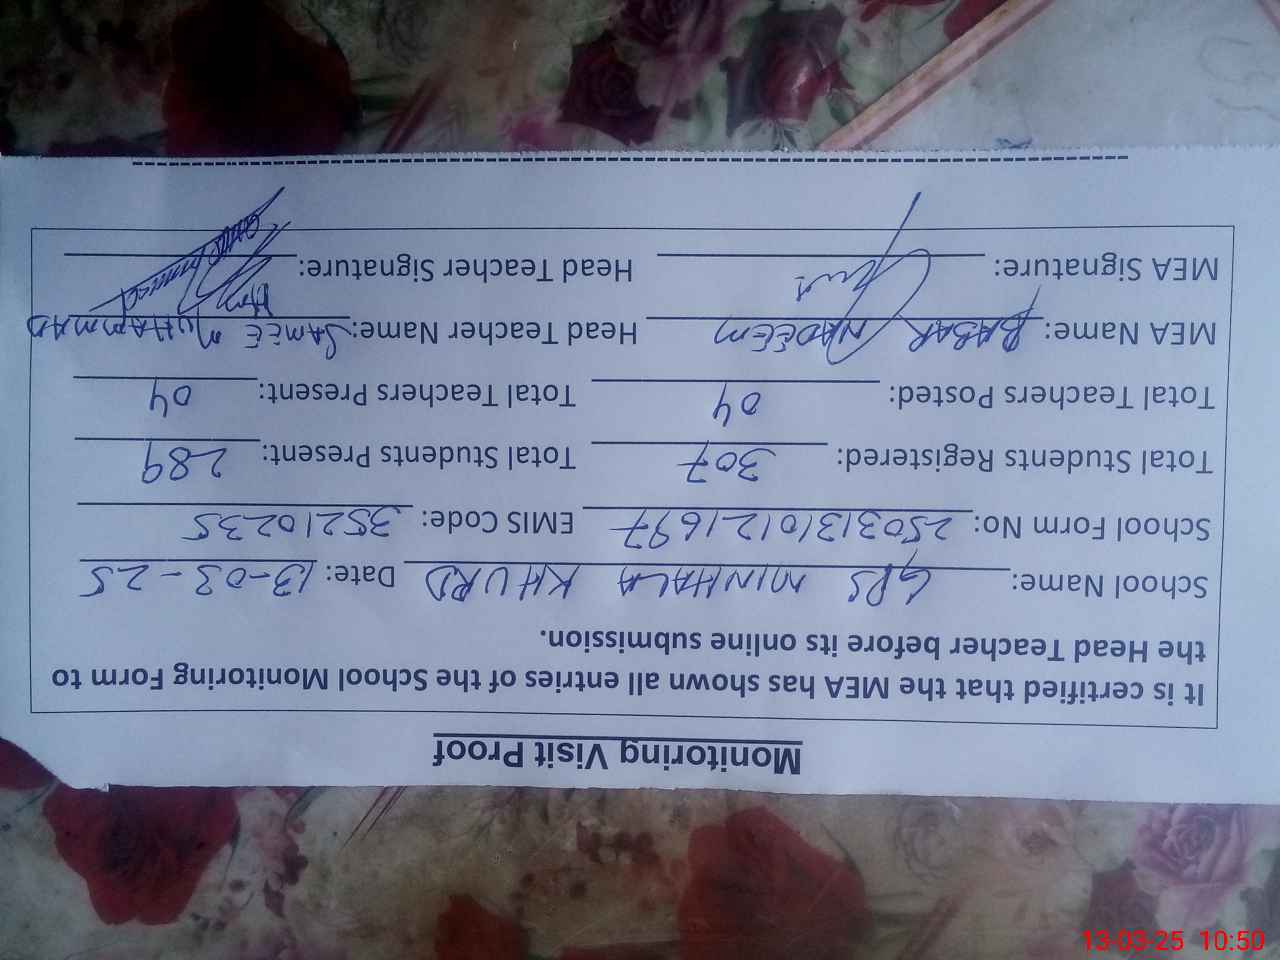 Monitoring Visit Proof
It is certified that the MEA has shown all entries of the School Monitoring Form to
the Head Teacher before its online submission.
School Name: GPS MINHALA KHURD Date: 13-03-25
School Form No: 25031310121697 EMIS Code: 35210235
Total Students Registered: 307 Total Students Present: 289
Total Teachers Posted: 04 Total Teachers Present: 04
MEA Name: BABAR NADEEM Head Teacher Name: SAMEE MUHAMMAD
MEA Signature: Head Teacher Signature:
13-03-25 10:50